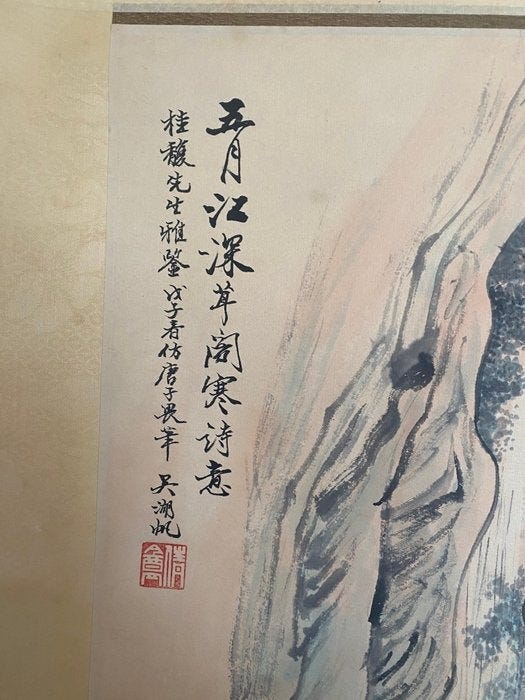 五月江深草阁寒诗意
桂馥先生雅鉴戊子春仿唐子畏笔
吴湖帆